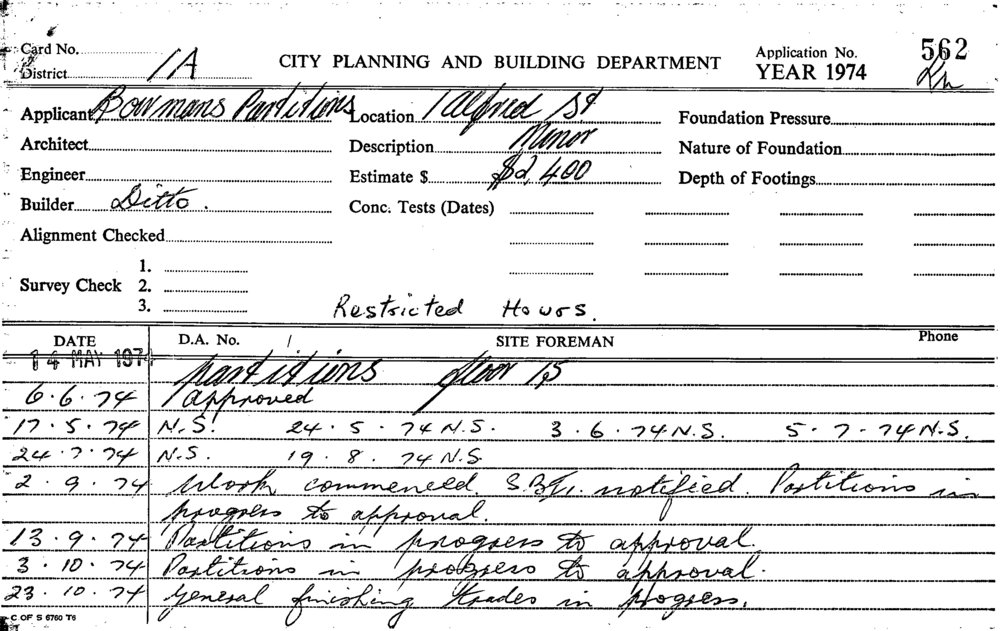 Card No.
District 1A
CITY PLANNING AND BUILDING DEPARTMENT
Application No. 562
YEAR 1974
Applicant Bowmans Partitions Location 1 Alfred St Foundation Pressure
Architect Description Minor Nature of Foundation
Engineer Estimate $ $2,400 Depth of Footings
Builder Ditto. Conc. Tests (Dates)
Alignment Checked
1.
Survey Check 2.
3. Restricted Hours.
DATE D.A. No. / SITE FOREMAN Phone
14 MAY 1974 partitions floor 15
6.6.74 approved
17.5.74 N.S. 24.5.74 N.S. 3.6.74 N.S. 5.7.74 N.S.
24.7.74 N.S. 19.8.74 N.S
2.9.74 Work commenced. notified. Partitions in
progress to approval.
13.9.74 Partitions in progress to approval.
3.10.74 Partitions in progress to approval.
23.10.74 General finishing trades in progress.
C OF S 6760 T6